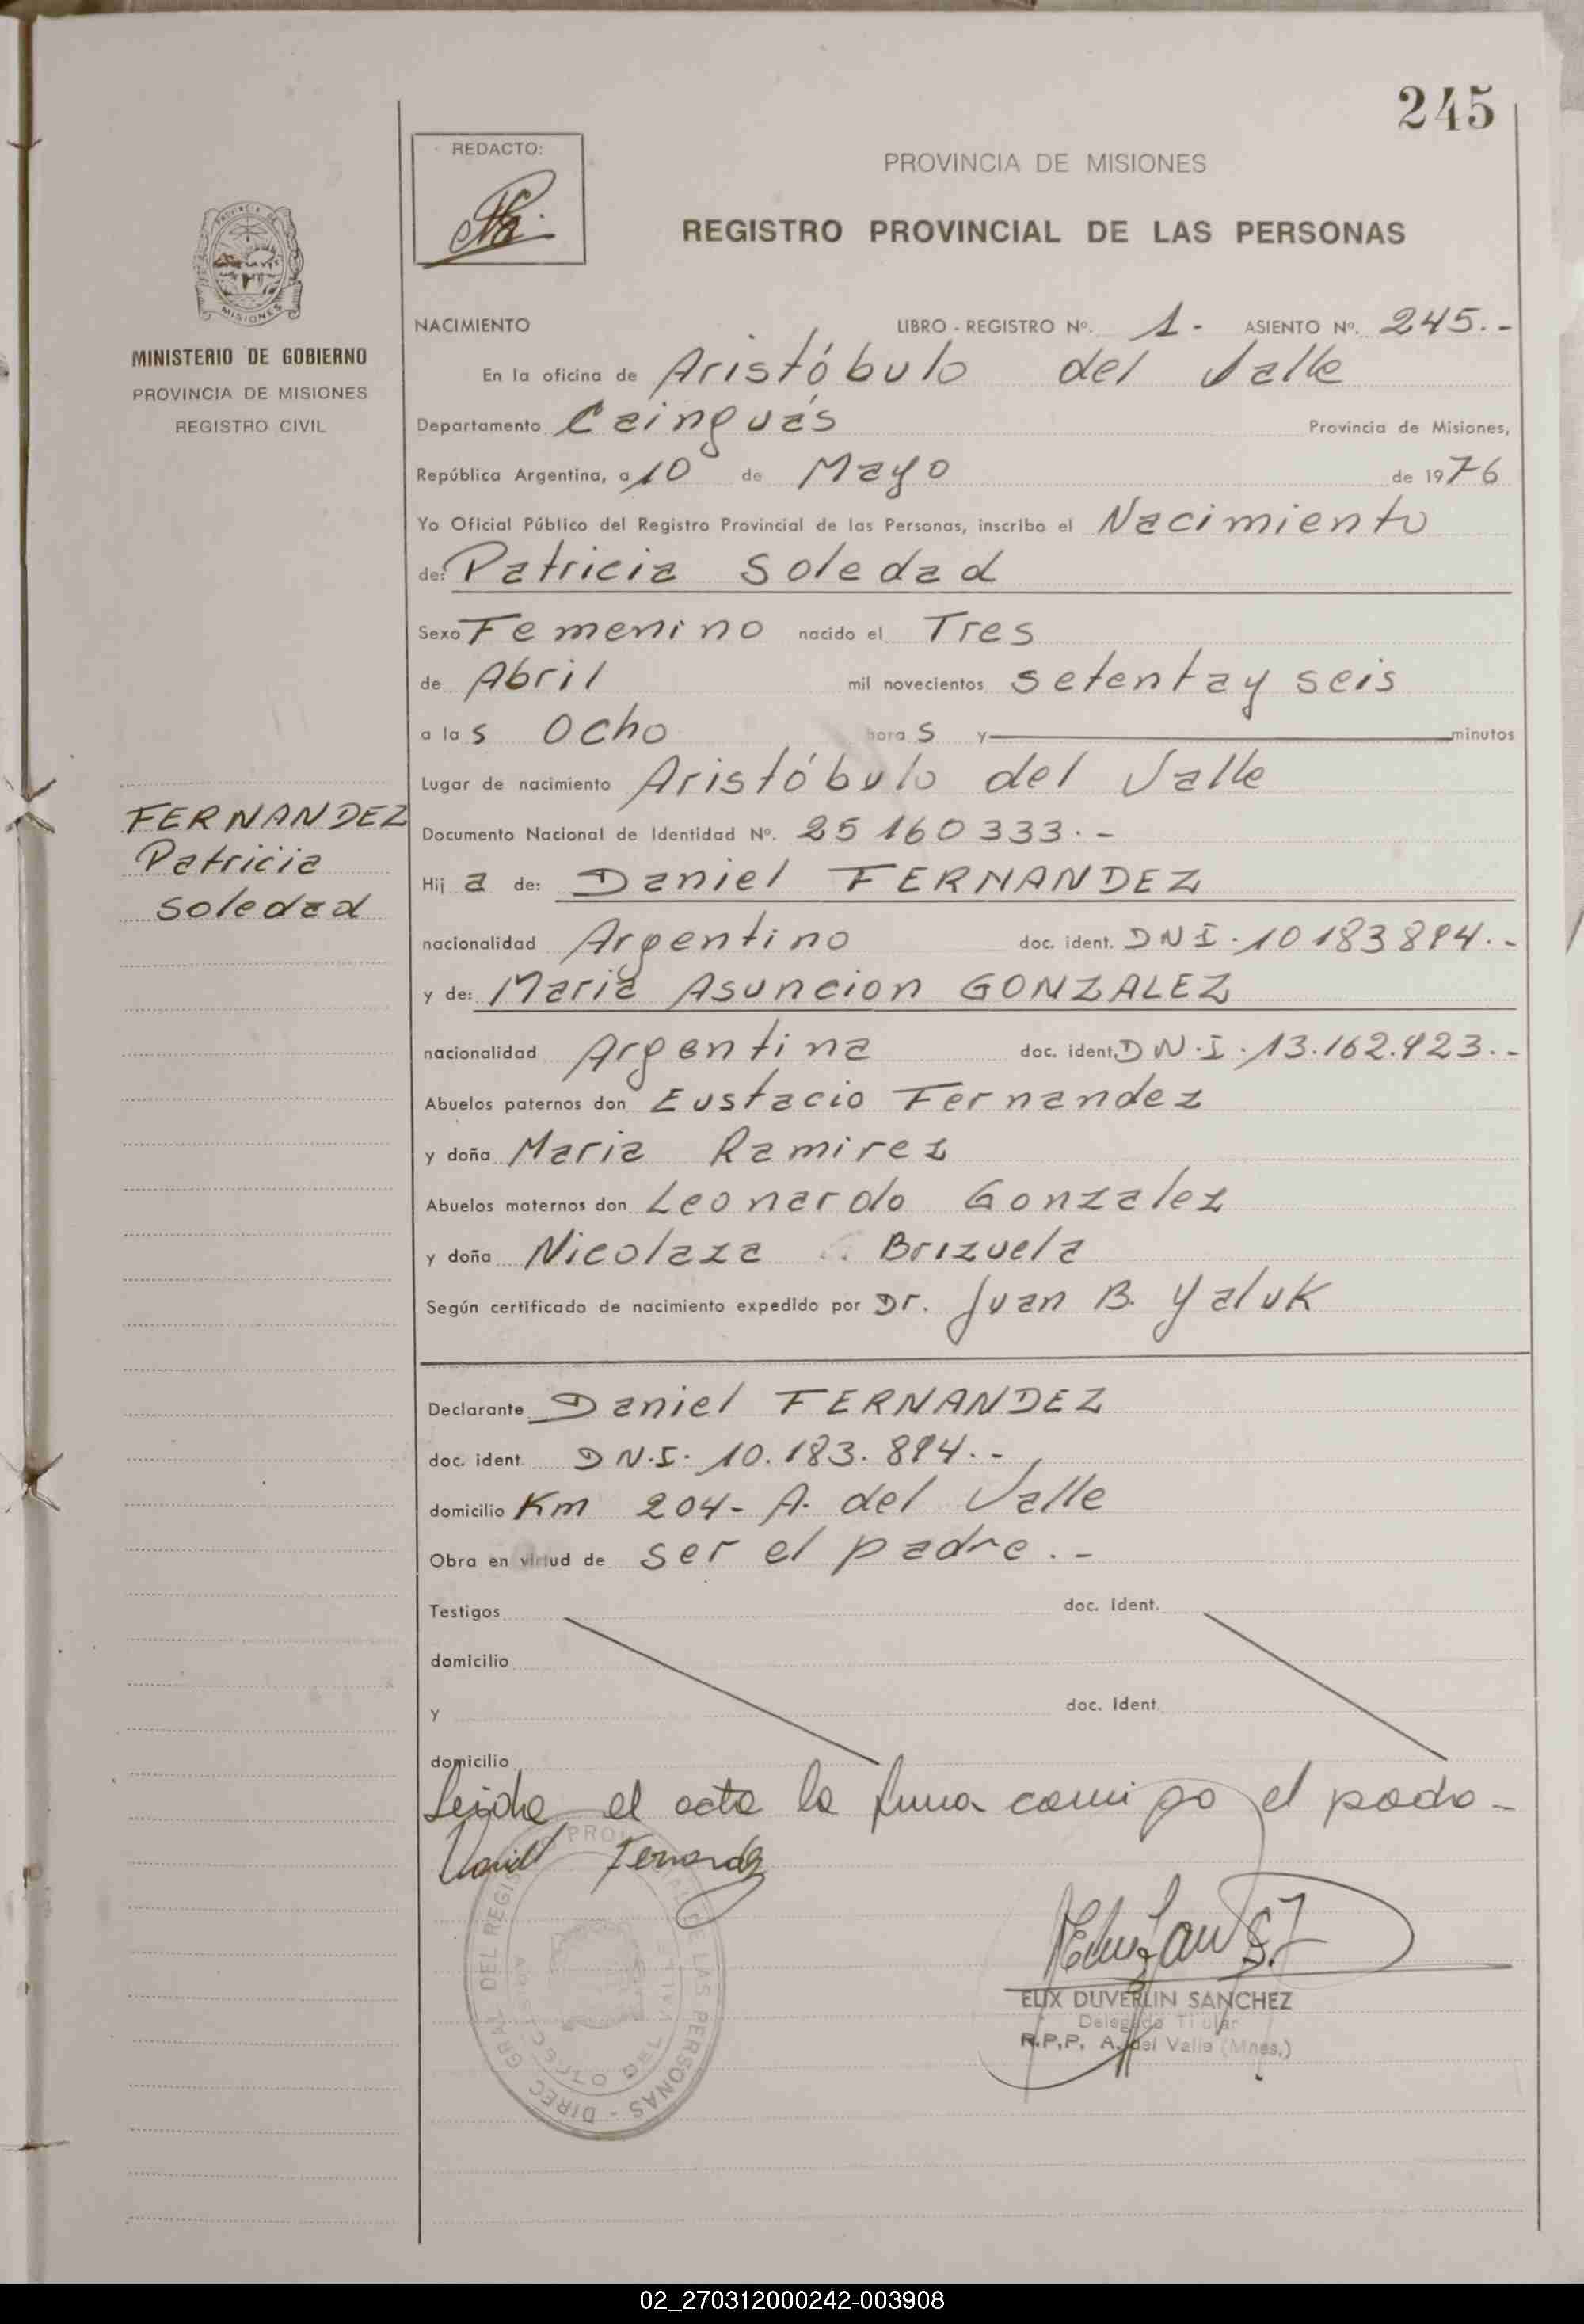 245
REDACTO:
PROVINCIA DE MISIONES
REGISTRO PROVINCIAL DE LAS PERSONAS
MISIONES
MINISTERIO DE GOBIERNO
PROVINCIA DE MISIONES
REGISTRO CIVIL
NACIMIENTO LIBRO - REGISTRO Nº. 1 - ASIENTO Nº. 245.-
En la oficina de Aristóbulo del Valle
Departamento Cainguás Provincia de Misiones,
República Argentina, a 10 de Mayo de 1976
Yo Oficial Público del Registro Provincial de las Personas, inscribo el Nacimiento
de: Patricia Soledad
Sexo Femenino nacido el Tres
de Abril mil novecientos setenta y seis
a las Ocho horas y minutos
Lugar de nacimiento Aristóbulo del Valle
FERNANDEZ
Patricia
Soledad
Documento Nacional de Identidad Nº. 25 160 333.-
Hija de: Daniel FERNANDEZ
nacionalidad Argentino doc. ident. DNI. 10 183 894.-
y de: Maria Asuncion GONZALEZ
nacionalidad Argentina doc. ident. DN.I. 13.162.923.-
Abuelos paternos don Eustacio Fernandez
y doña Maria Ramirez
Abuelos maternos don Leonardo Gonzalez
y doña Nicolaza Brizuela
Según certificado de nacimiento expedido por Dr. Juan B. Yaluk
Declarante Daniel FERNANDEZ
doc. ident. DN.I. 10.183.894.-
domicilio Km 204- A. del Valle
Obra en virtud de ser el padre.-
Testigos doc. ident.
domicilio
y doc. ident.
domicilio
Leida el acta la firma conmigo el padre -
Daniel Fernandez
DIREC. GRAL. DEL REGISTRO PROVINCIAL DE LAS PERSONAS -
ELIX DUVERLIN SANCHEZ
Delegado Titular
R.P.P. A. del Valle (Mnes.)
02_270312000242-003908